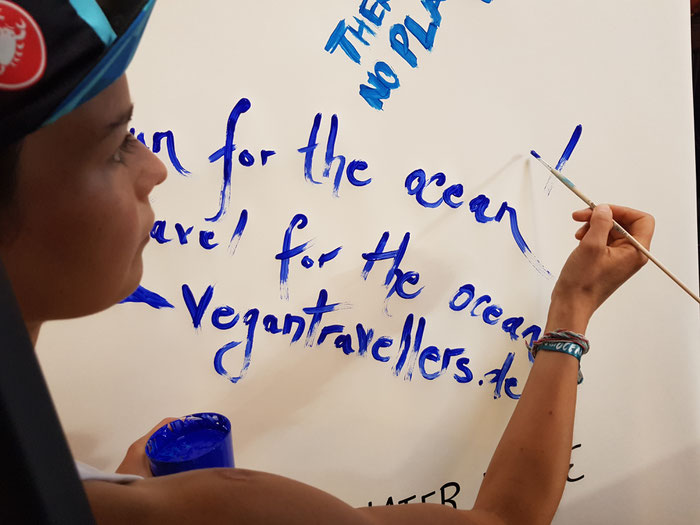 THER
NO PLA
for the ocean
for the ocean
Vegantravellers.de
WATER